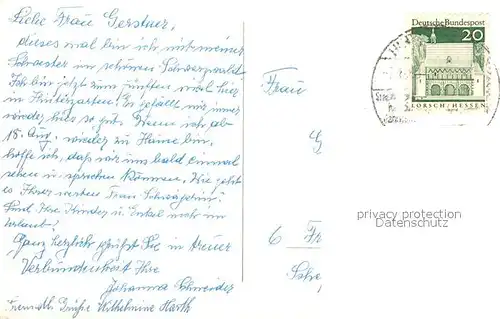 Liebe Frau Gerstner,
dieses mal bin ich mit meiner
Schwester im schönen Schwarzwald
Ich bin jetzt zum fünften mal hier
in Hinterzarten. Es gefällt mir immer
wieder hier so gut. Wenn ich ab
18. Aug. wieder zu Hause bin,
hoffe ich, daß wir uns bald einmal
sehen u. sprechen können. Wie geht
es Ihrer werten Frau Schwägerin?
Sind Ihre Kinder u. Enkel noch im
Urlaub?
Ganz herzlich grüßt Sie in treuer
Verbundenheit Ihre
Johanna Schneider
Freundl. Grüße Wilhelmine Harth
Deutsche Bundespost
20
LORSCH/HESSEN
Frau
6
privacy protection
Datenschutz